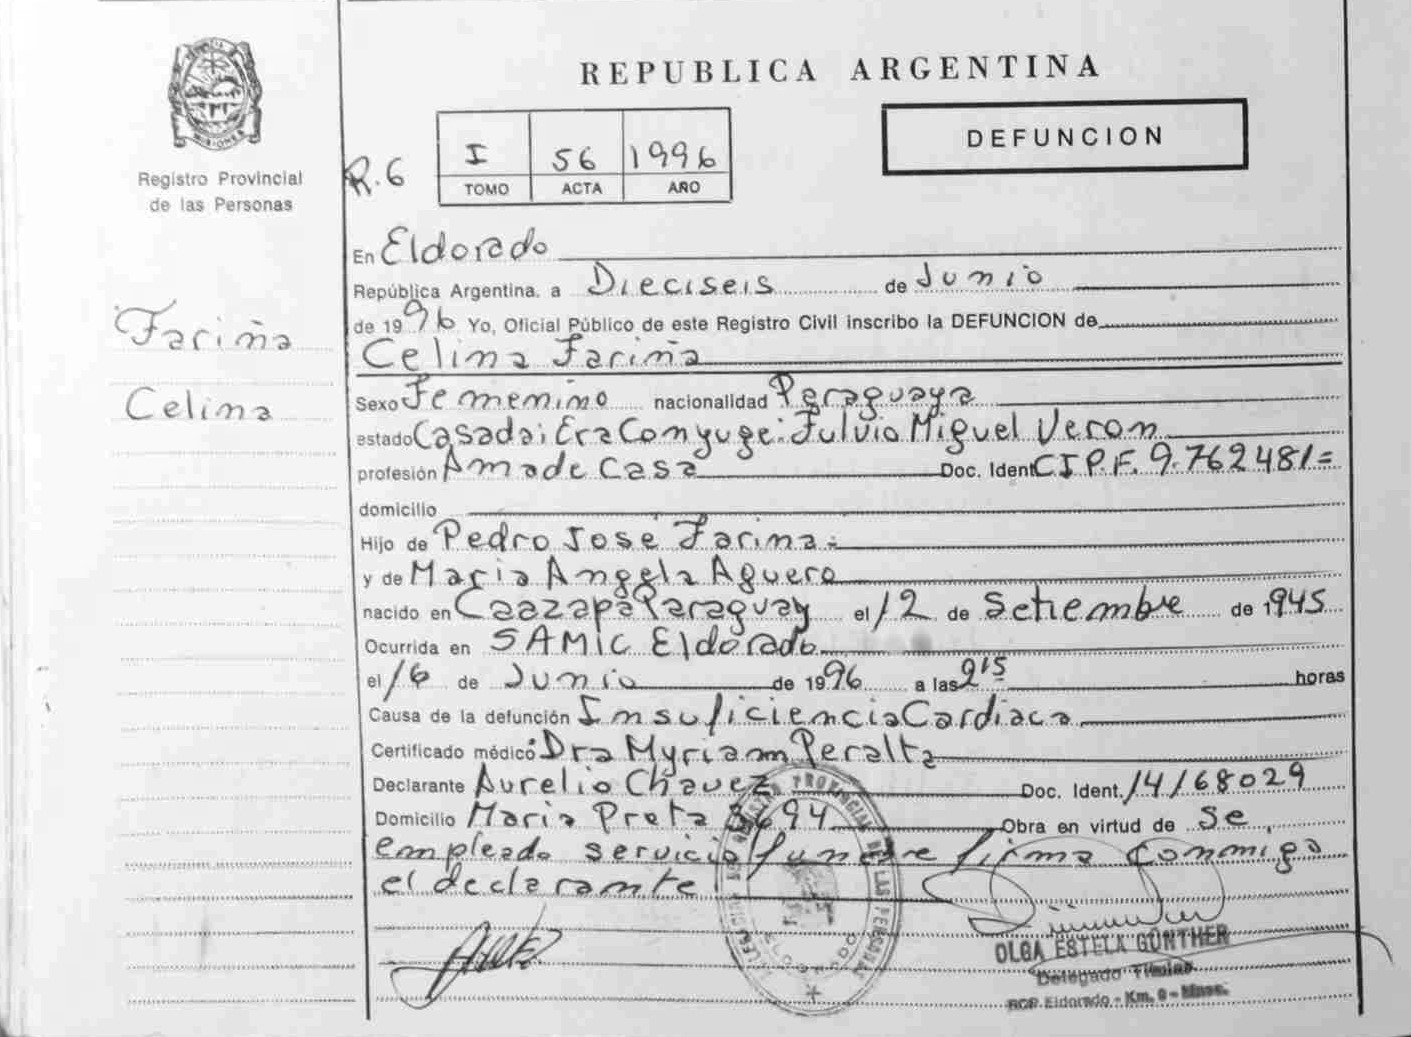 REPUBLICA ARGENTINA
DEFUNCION
R.6
I 56 1996
TOMO ACTA AÑO
MISIONES
Registro Provincial
de las Personas
Fariña
Celina
En Eldorado
República Argentina, a Dieciseis de Junio
de 1996 Yo, Oficial Público de este Registro Civil inscribo la DEFUNCION de
Celina Fariña
Sexo Femenino nacionalidad Paraguaya
estado Casada; Era Conyuge: Fulvio Miguel Veron
profesión Ama de Casa Doc. Ident. C I P.F. 9.762481=
domicilio
Hijo de Pedro José Farina.
y de Maria Angela Aguero
nacido en Caazapa Paraguay el 12 de Setiembre de 1945
Ocurrida en SAMIC Eldorado
el 16 de Junio de 1996 a las 2 15 horas
Causa de la defunción Insuficiencia Cardiaca
Certificado médico Dra Myriam Peralta
Declarante Aurelio Chavez Doc. Ident. 14168029
Domicilio Maria Preta 3694 Obra en virtud de se,
empleado servicio funebre firma conmigo
el declarante
REGISTRO PROVINCIAL DE LAS PERSONAS
ELDORADO
OLGA ESTELA GÜNTHER
Delegado Titular
RCP. Eldorado - Km. 9 - Mnes.